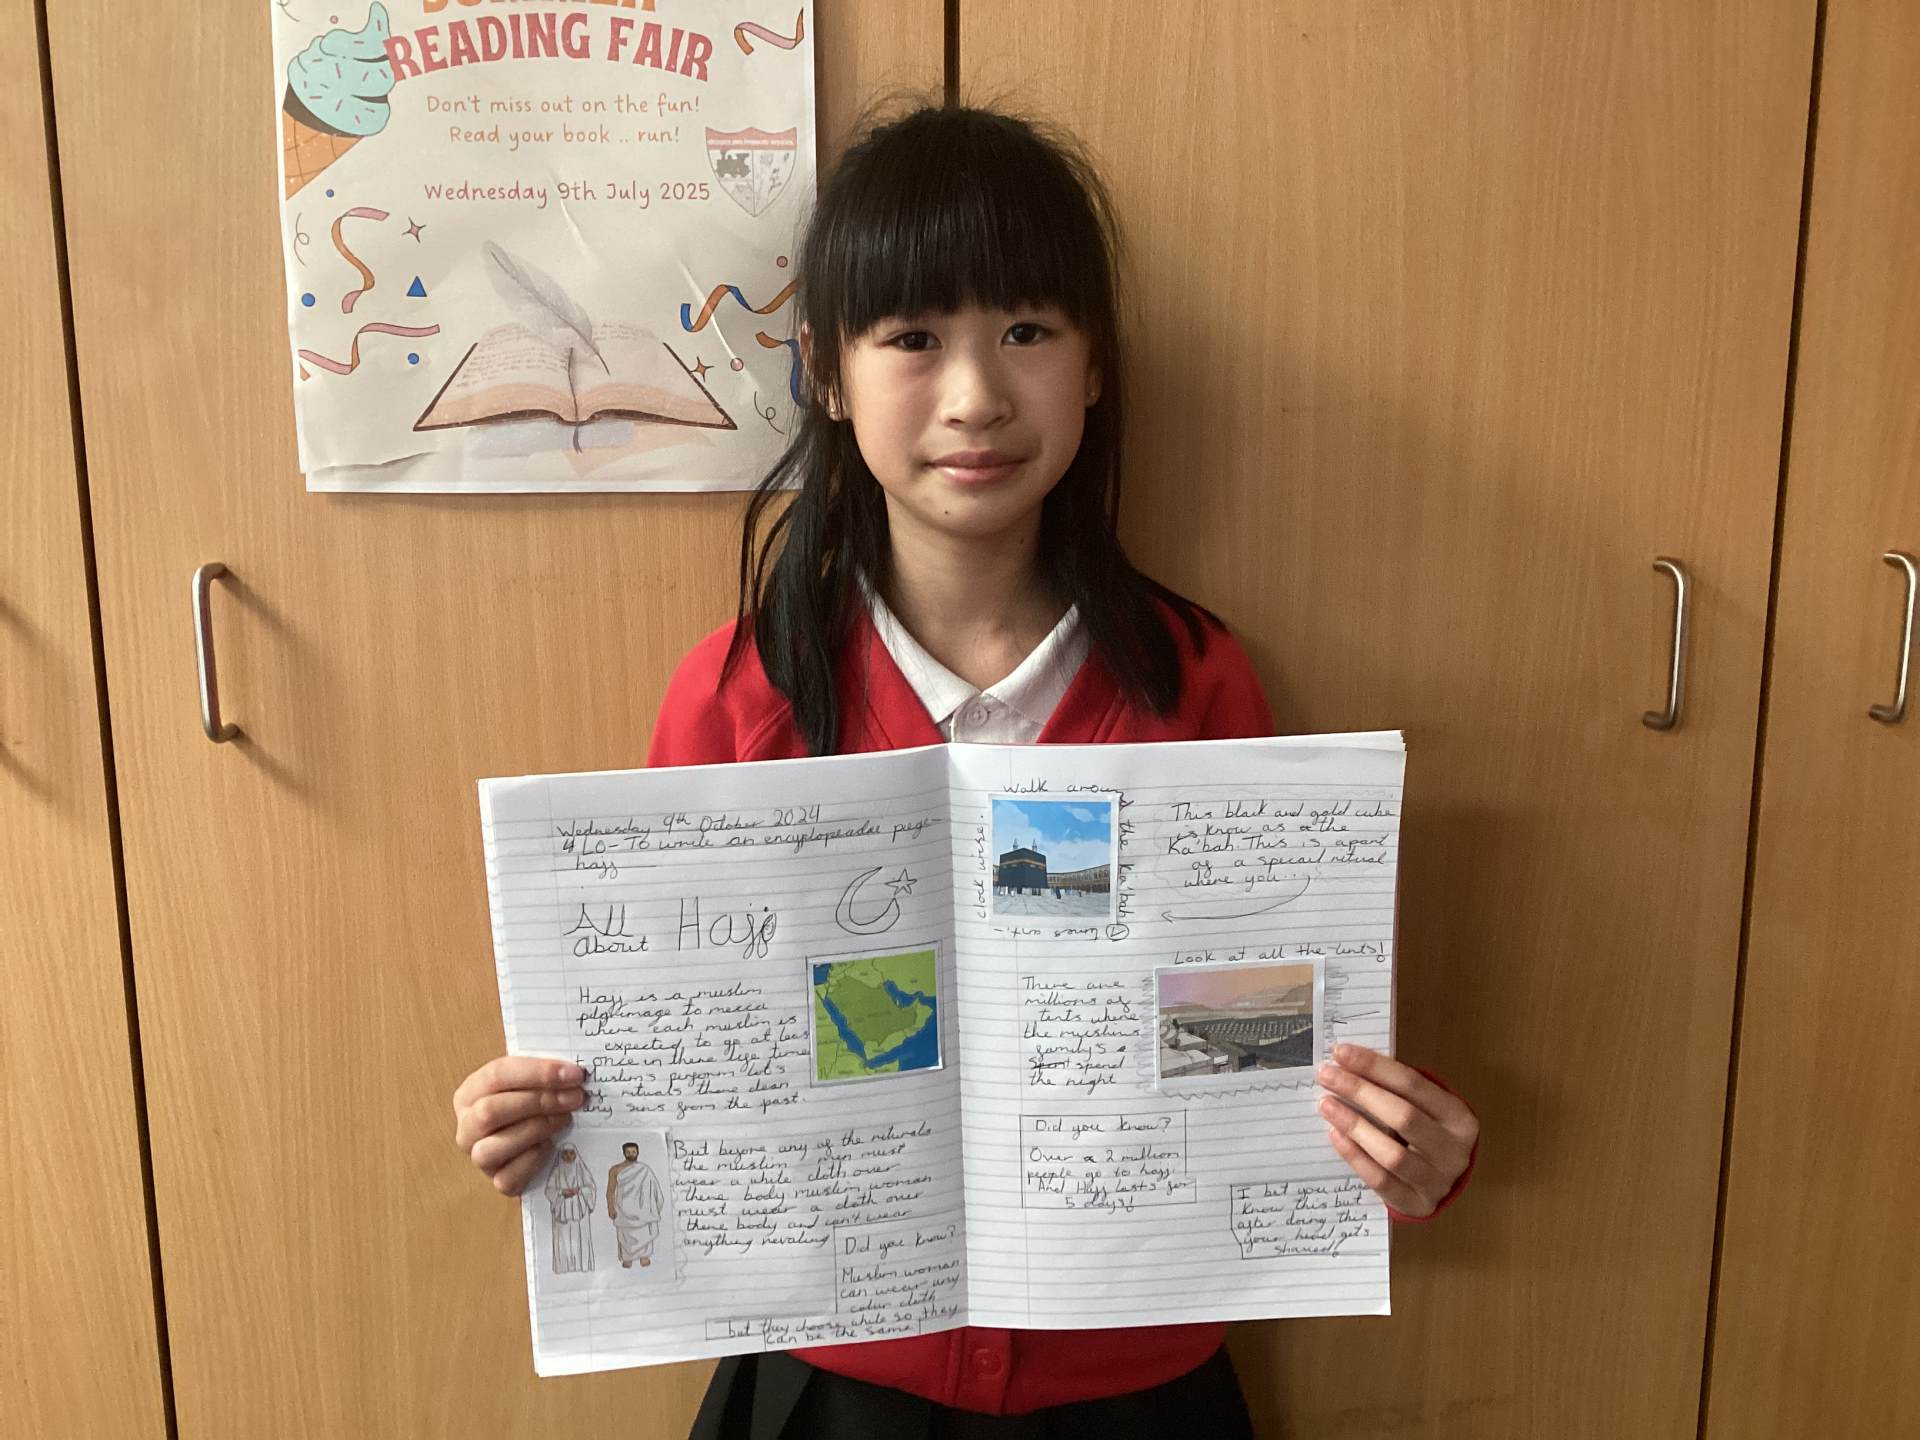 SUMMER
READING FAIR
Don't miss out on the fun!
Read your book .. run!
Wednesday 9th July 2025
Wednesday 9th October 2024
LO- To write an encyplopeadae page-
hajj
All
about Hajj
Hajj is a muslim
pilgrimage to mecca
where each muslim is
expected to go at leas
t once in there life time
Muslim's perform lot's
of rituals there clean
any sins from the past.
But before any of the riturals
the muslim men must
wear a white cloth over
there body muslim woman
must wear a cloth over
there body and can't wear
anything revealing
Did you know?
Muslim woman
can wear any
colur cloth
but they choose white so they
can be the same
Walk around the Ka'bah
7 times anti-
clock wise.
This black and gold cube
is know as the
Ka'bah. This is apart
of a special ritual
where you...
Look at all the tents!
There are
millions of
tents where
the muslims
family's
spend
the night
Did you know?
Over 2 million
people go to hajj.
And Hajj lasts for
5 days!
I bet you
know this but
after doing this
your head gets
shaved!